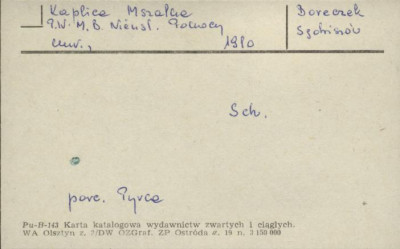 Kaplica Mszalna
P.W. M.B. Nieust. Pomocy
mur., 1980
Boreczek
Sędziszów
Sch.
parc. Pyrca
Pu-B-143 Karta katalogowa wydawnictw zwartych i ciągłych.
WA Olsztyn z. 2/DW OZGraf. ZP Ostróda z. 16 n. 3 150 000